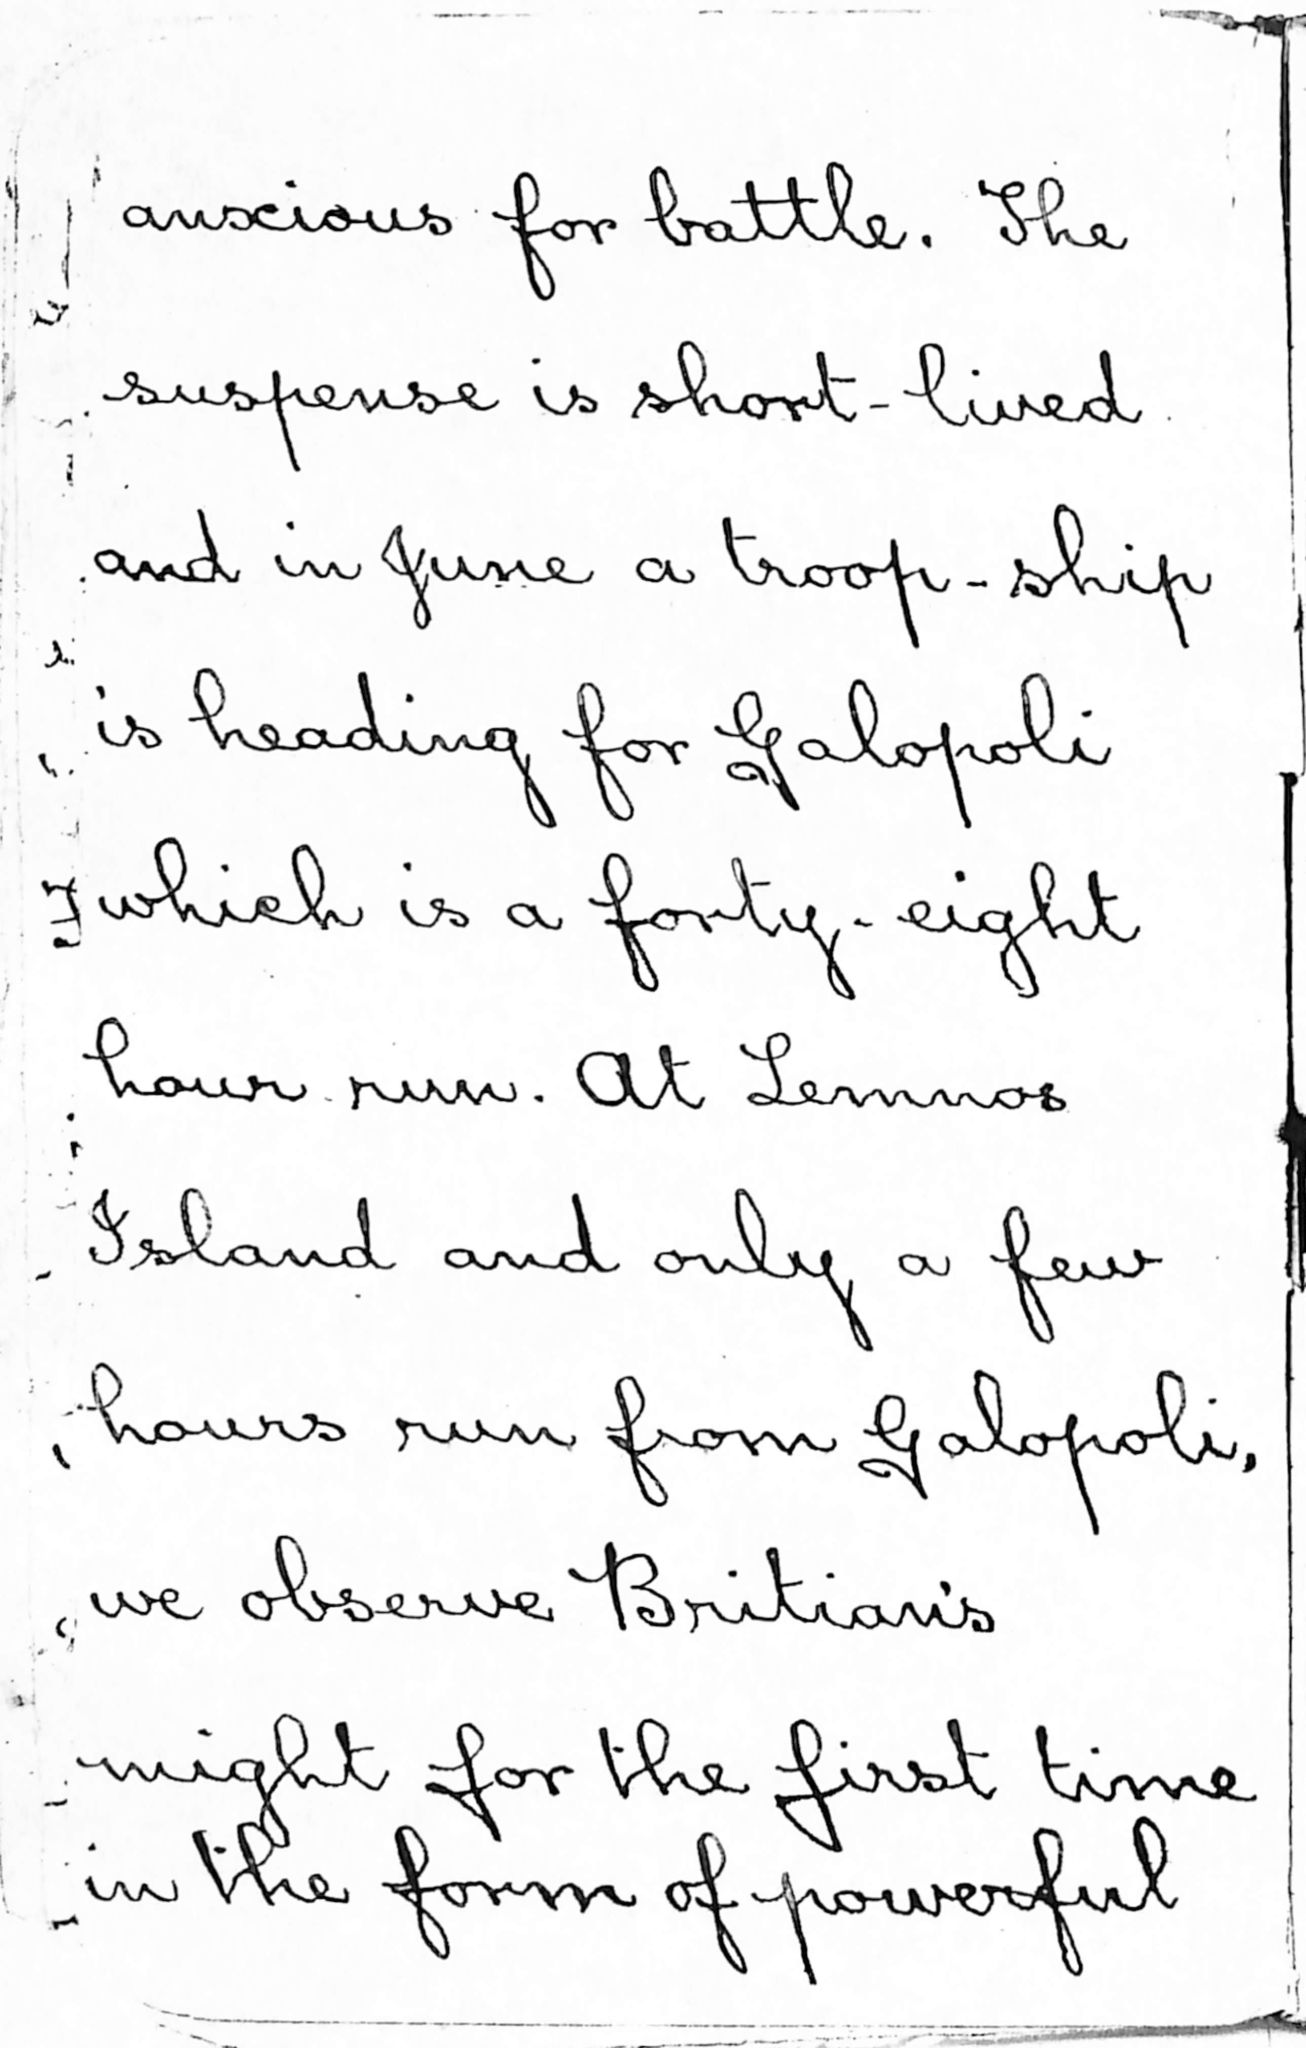 anxious for battle. The
suspense is short-lived
and in June a troop-ship
is heading for Galopoli
which is a forty-eight
hour run. At Lemnos
Island and only a few
hours run from Galopoli,
we observe Britian's
might for the first time
in the form of powerful